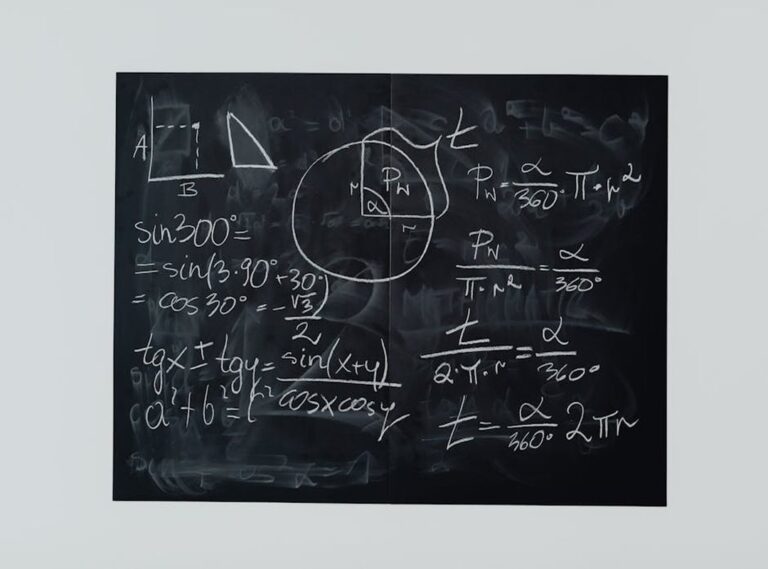 A
B
t
r
P_W
α
r
sin300°=
=sin(3·90°+30°)
= cos30° = -√3/2
tgx ± tgy = sin(x+y)/cosxcosy
a²+b²=c²
P_W = α/360° π·r²
P_W/π·r² = α/360°
t/2·π·r = α/360°
t = α/360° 2πr